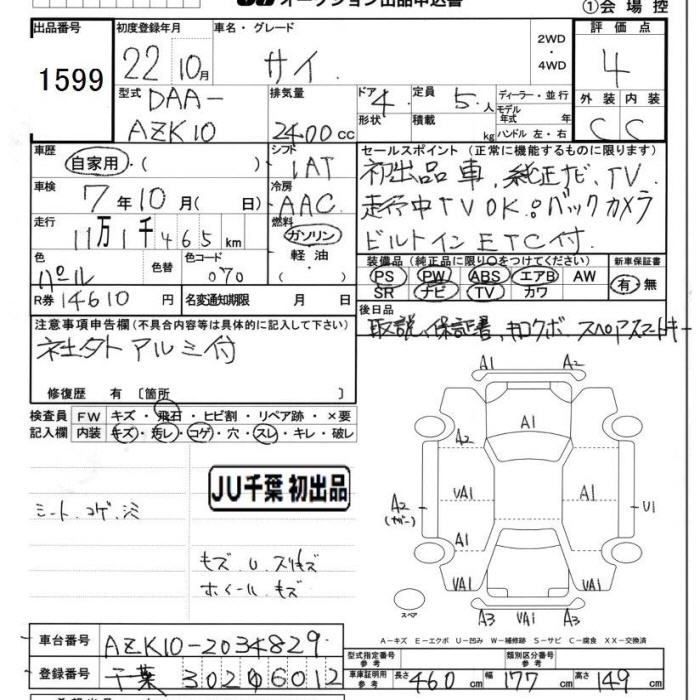 オークション出品申込書
①会場控
出品番号 初度登録年月 車名・グレード 2WD・4WD 評価点
1599 22 10月 サイ 4
型式 DAA-AZK10 排気量 2400cc ドア 4 形状 定員 5人 積載 kg
ディーラー・並行 モデル年式 年 ハンドル 左・右
外装 内装
C C
車歴 自家用・( ) シフト IAT
車検 7年10月( 日) 冷房 AAC
走行 11万1千465km 燃料 ガソリン・軽油・
色 パール 色替 色コード 070
R券 14610円 名変通知期限 月 日
セールスポイント (正常に機能するものに限ります)
初出品車、純正ナビ、TV
走行中TVOK。バックカメラ
ビルトインETC付.
装備品 (純正品に限り○をつけてください) 新車保証書
PS PW ABS エアB AW 有・無
SR ナビ TV カワ
後日品
取説、保証書、キロクボ、スペアスマートキー
注意事項申告欄(不具合内容等は具体的に記入して下さい)
社外アルミ付
修復歴 有 〔箇所 〕
検査員 FW キズ・飛石・ヒビ割・リペア跡・×要
記入欄 内装 キズ・汚レ・コゲ・穴・スレ・キレ・破レ
JU千葉 初出品
シート、コゲ、シミ
キズ U スリキズ
ホイール キズ
A1 A2
A1
A2
A2 UA1 A1 U1
A1
UA1 UA1
A3 UA1 A3
スペア
A-キズ E-エクボ U-凹み W-補修跡 S-サビ C-腐食 XX-交換済
車台番号 AZK10-2034829
型式指定番号 参考 類別区分番号 参考
登録番号 千葉 302 6012
車庫証明用 参考 長さ 460cm 幅 177cm 高さ 149cm